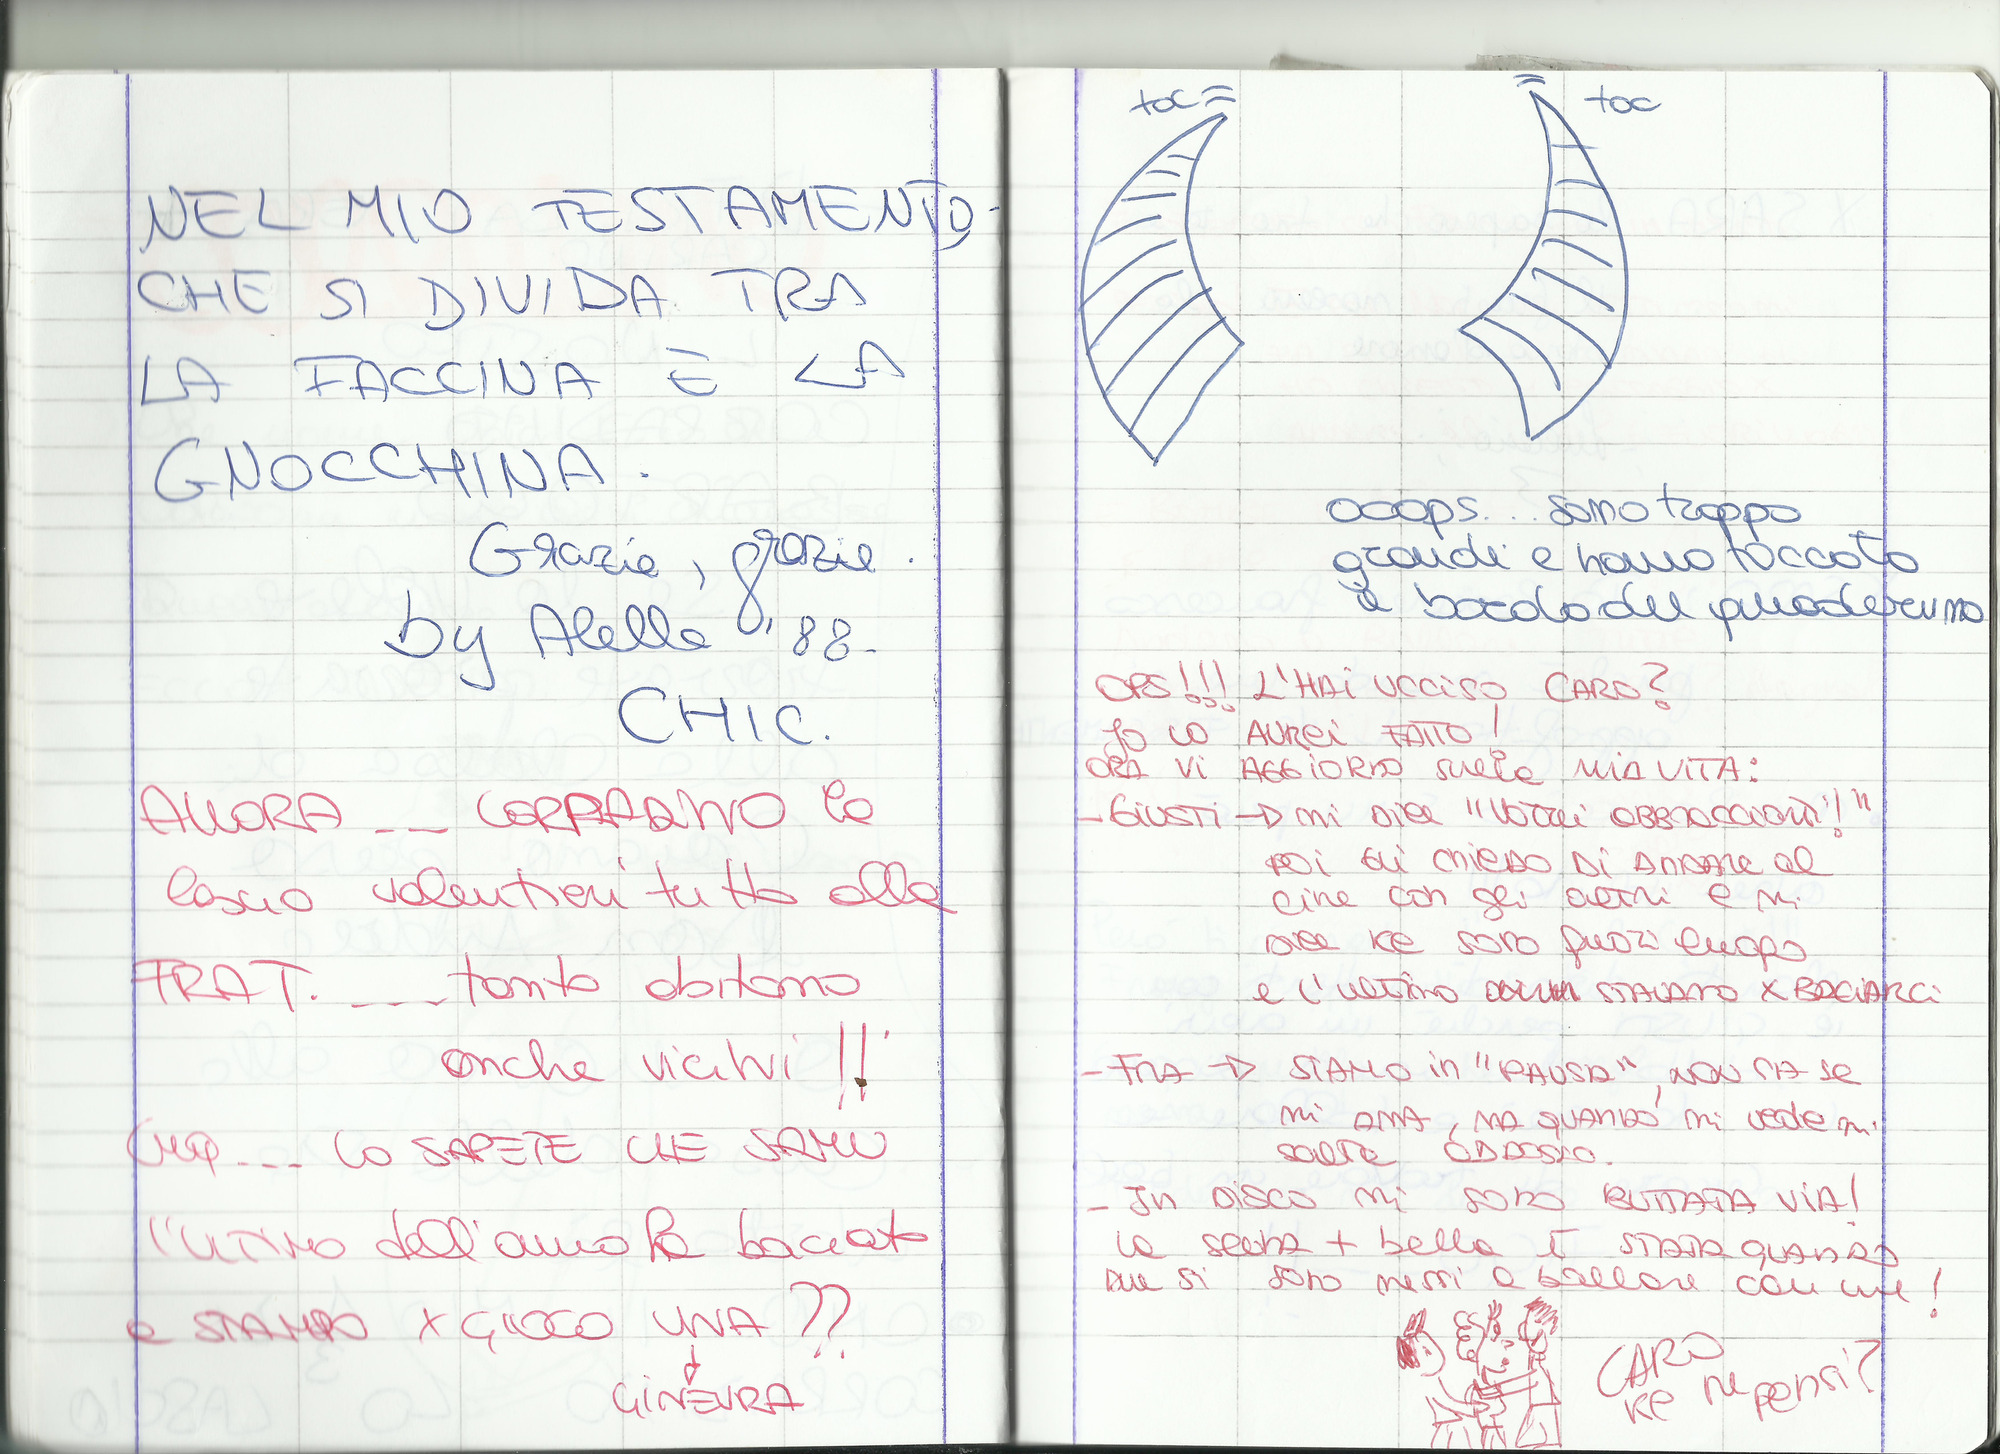 NEL MIO TESTAMENTO
CHE SI DIVIDA TRA
LA FACCINA E LA
GNOCCHINA.
Grazie, grazie.
by Alella '88.
CHIC.
ALLORA ___ CORRADINO lo
lascio volentieri tutto alla
FRAT. ___ tanto abitano
anche vicini!!
___ LO SAPETE CHE SAMU
l'ULTIMO dell'anno ha baciato
a STAMPO x GIOCO UNA??
GINEVRA
toc
toc
ooops... sono troppo
grandi e hanno toccato
il bordo del quadernino
OPS!!! L'HAI UCCISO CARO?
IO LO AUREI FATTO!
ORA VI AGGIORNO sulla MIA VITA:
- GIUSTI → mi DICE "VORREI ABBRACCIARTI!"
POI GLI CHIEDO DI ANDARE al
cine con gli altri E mi
DICE KE SONO fuori luogo
e l'ultimo STAVANO x BACIARCI
- FRA → SIAMO in "PAUSA", NON SA SE
mi AMA, MA QUANDO mi vede mi
SALTA ADDOSSO.
- In DISCO mi SONO BUTTATA VIA!
LA SCENA + bella È STATA QUANDO
DUE SI SONO messi a ballare con me!
CARO
KE NE pensi?